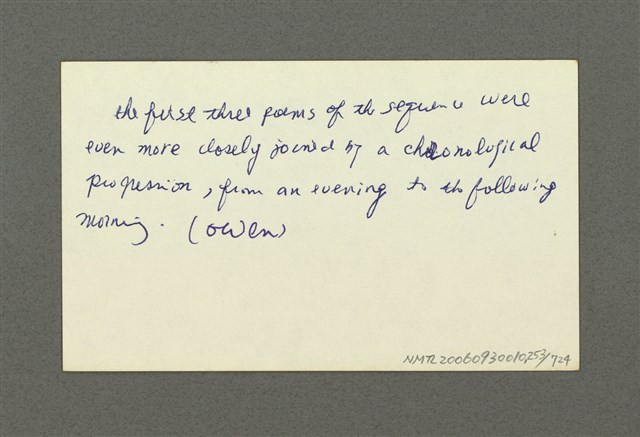 the first three poems of the sequence were
even more closely joined by a chronological
progression, from an evening to the following
morning. (Owen)
NMTL20060930010,253/724